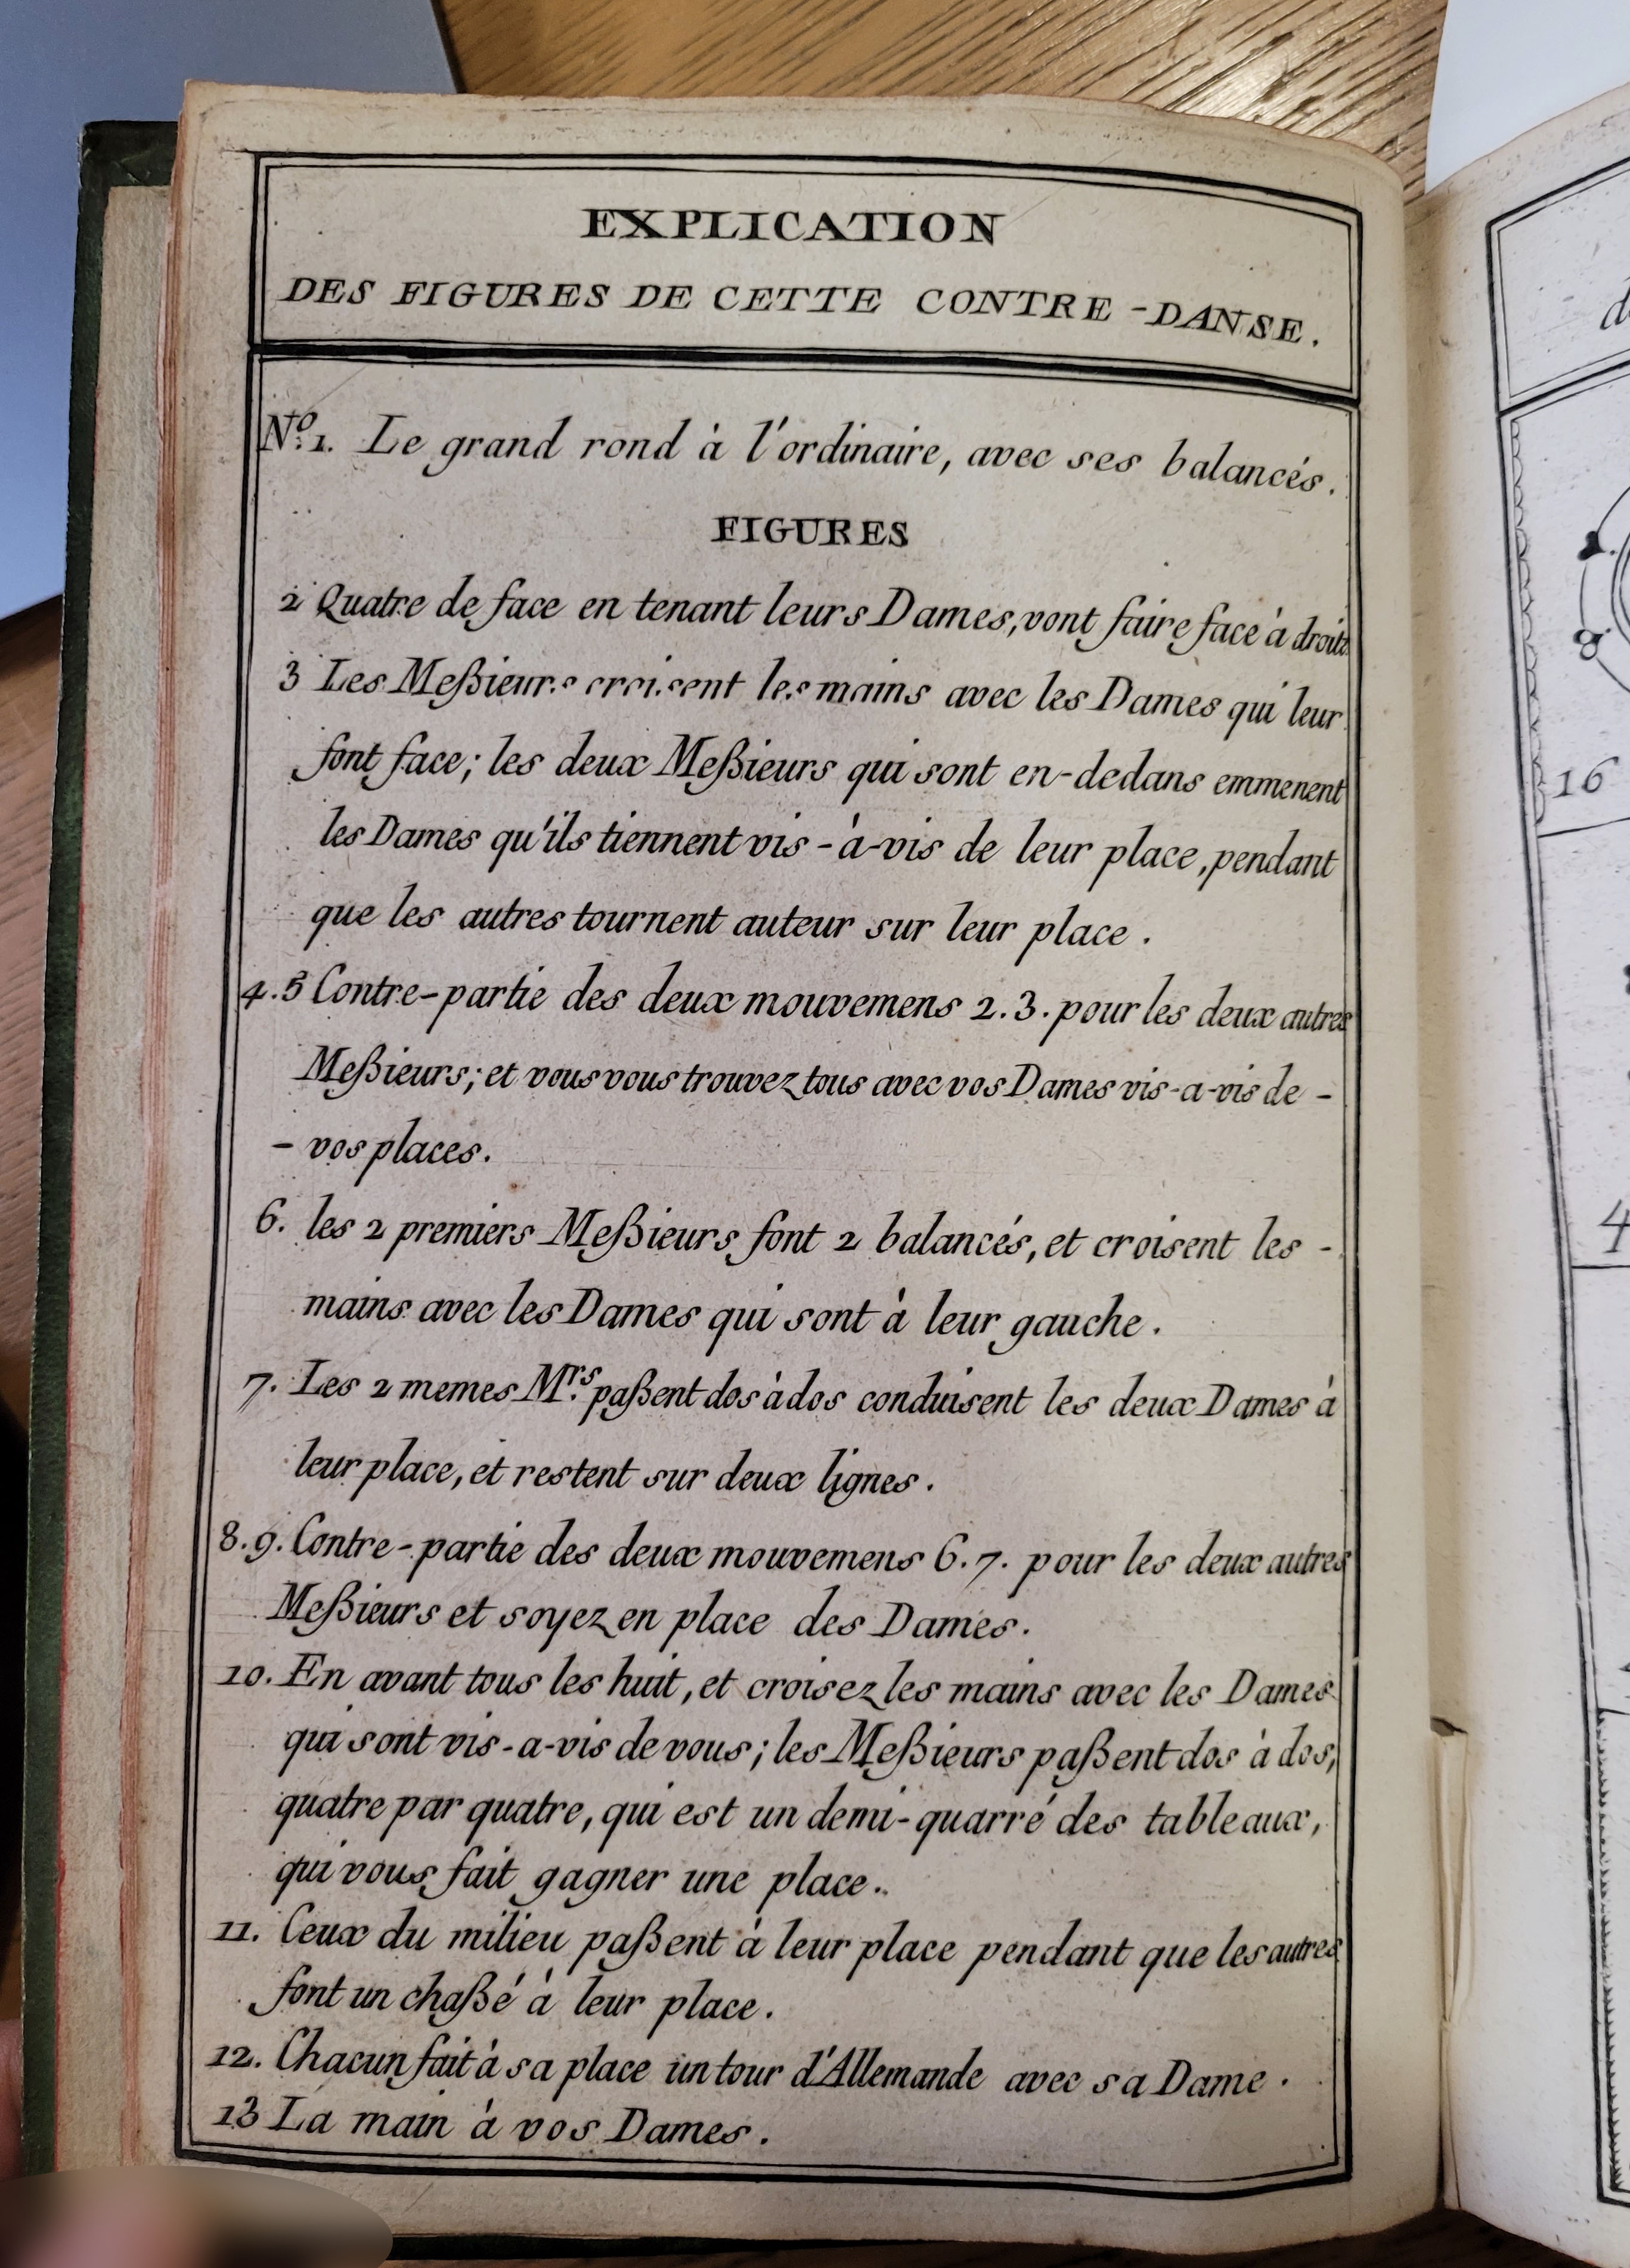 EXPLICATION
DES FIGURES DE CETTE CONTRE-DANSE.
Nº. 1. Le grand rond à l'ordinaire, avec ses balancés.
FIGURES
2 Quatre de face en tenant leurs Dames, vont faire face à droite
3 Les Meßieurs croisent les mains avec les Dames qui leur
font face; les deux Meßieurs qui sont en-dedans emmenent
les Dames qu'ils tiennent vis-à-vis de leur place, pendant
que les autres tournent auteur sur leur place.
4.5 Contre-partie des deux mouvemens 2.3. pour les deux autres
Meßieurs; et vous vous trouvez tous avec vos Dames vis-a-vis de -
- vos places.
6. les 2 premiers Meßieurs font 2 balancés, et croisent les -
mains avec les Dames qui sont à leur gauche.
7. Les 2 memes Mrs. paßent dos à dos conduisent les deux Dames à
leur place, et restent sur deux lignes.
8.9. Contre-partie des deux mouvemens 6.7. pour les deux autres
Meßieurs et soyez en place des Dames.
10. En avant tous les huit, et croisez les mains avec les Dames
qui sont vis-a-vis de vous; les Meßieurs paßent dos à dos,
quatre par quatre, qui est un demi-quarré des tableaux,
qui vous fait gagner une place.
11. Ceux du milieu paßent à leur place pendant que les autres
font un chaßé à leur place.
12. Chacun fait à sa place un tour d'Allemande avec sa Dame.
13 La main à vos Dames.
d
8
16
4